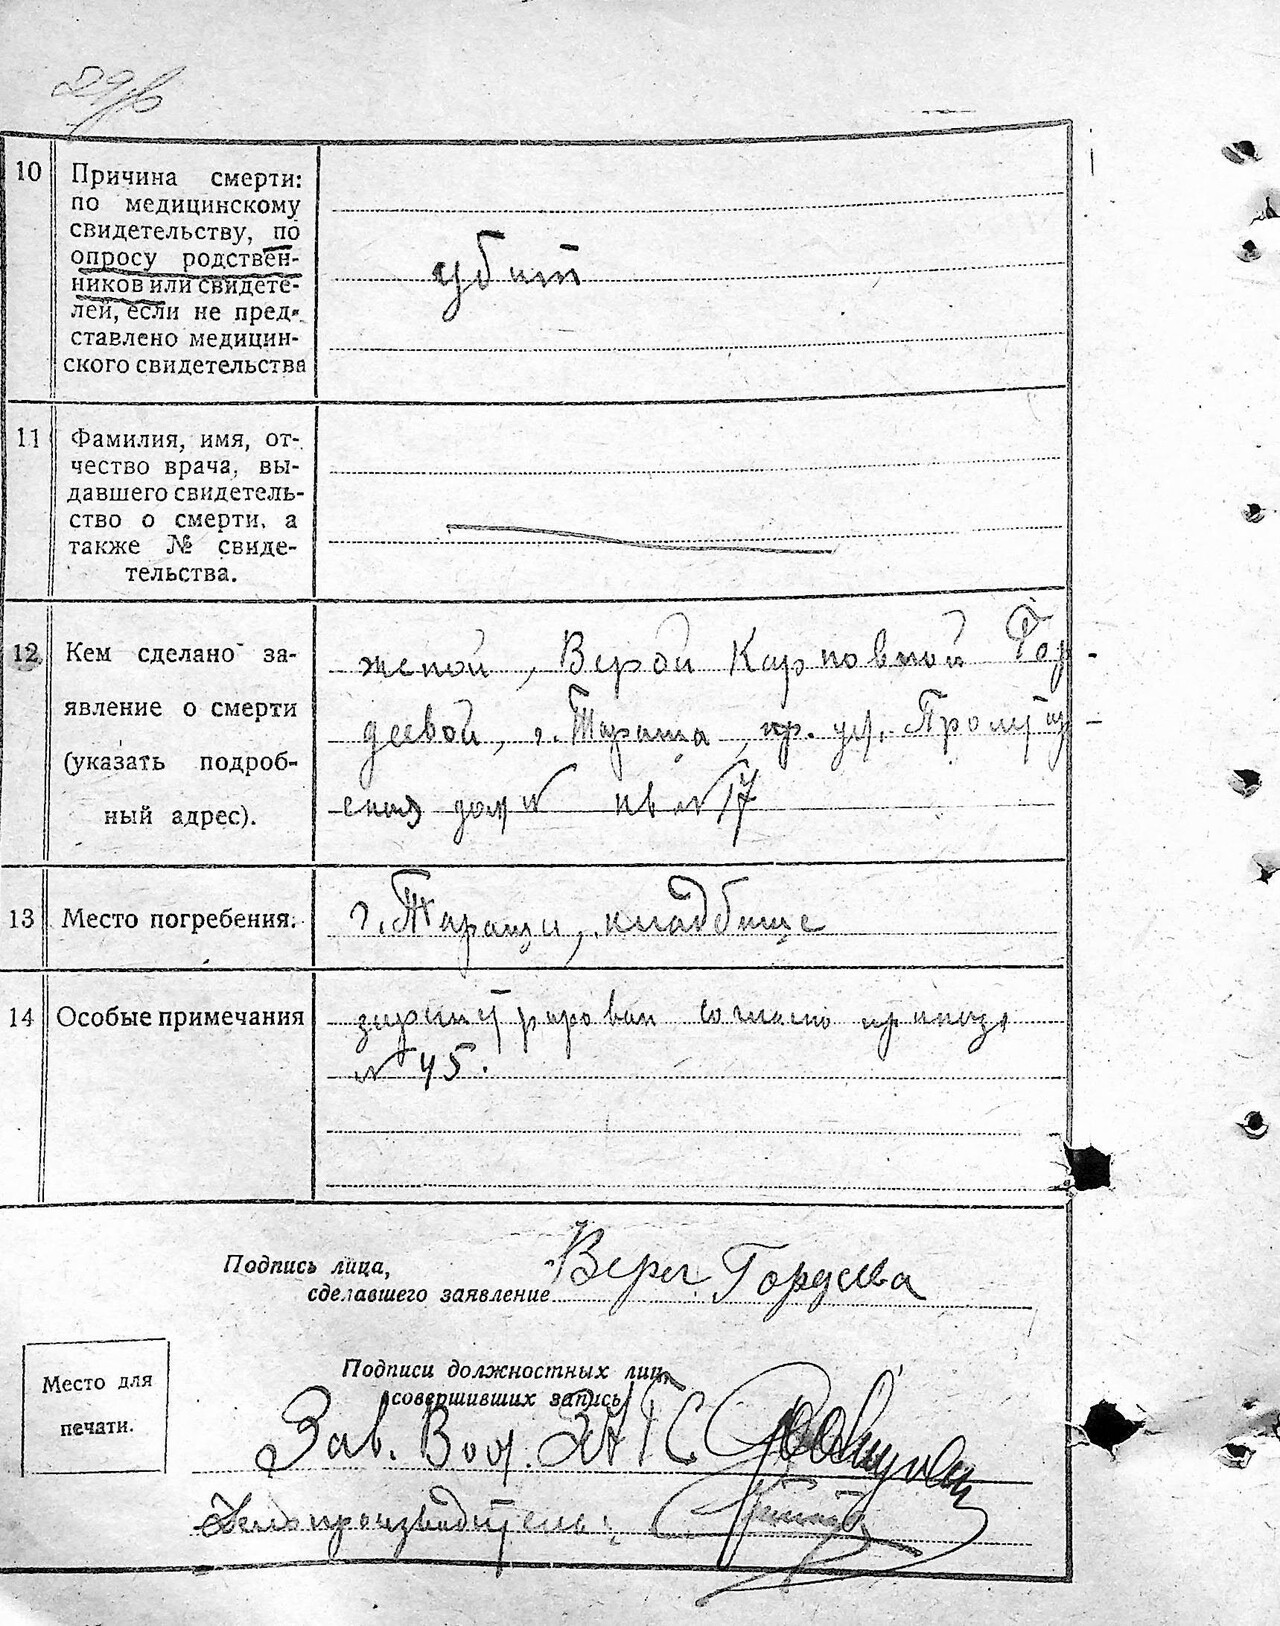 10
Причина смерти:
по медицинскому
свидетельству, по
опросу родствен-
ников или свидете-
лей, если не пред-
ставлено медицин-
ского свидетельства
убит
11
Фамилия, имя, от-
чество врача, вы-
давшего свидетель-
ство о смерти, а
также № свиде-
тельства.
12
Кем сделано за-
явление о смерти
(указать подроб-
ный адрес).
женой, Верой Карповной Гор-
деевой, г. Тараща, пр. ул.
дом № кв № 17
13
Место погребения.
г. Таращи, кладбище
14
Особые примечания
зарегистрирован согласно приказа
№ 45.
Подпись лица,
сделавшего заявление Вера Гордеева
Подписи должностных лиц,
совершивших запись
Место для
печати.
Зав. ЗАГС
Делопроизводитель: